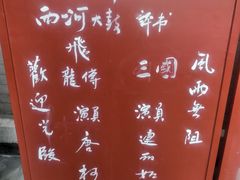 西河大鼓 評书
風雨無阻
三國
演員 連丽如
飛龍傳
演員 唐柯
歡迎光臨